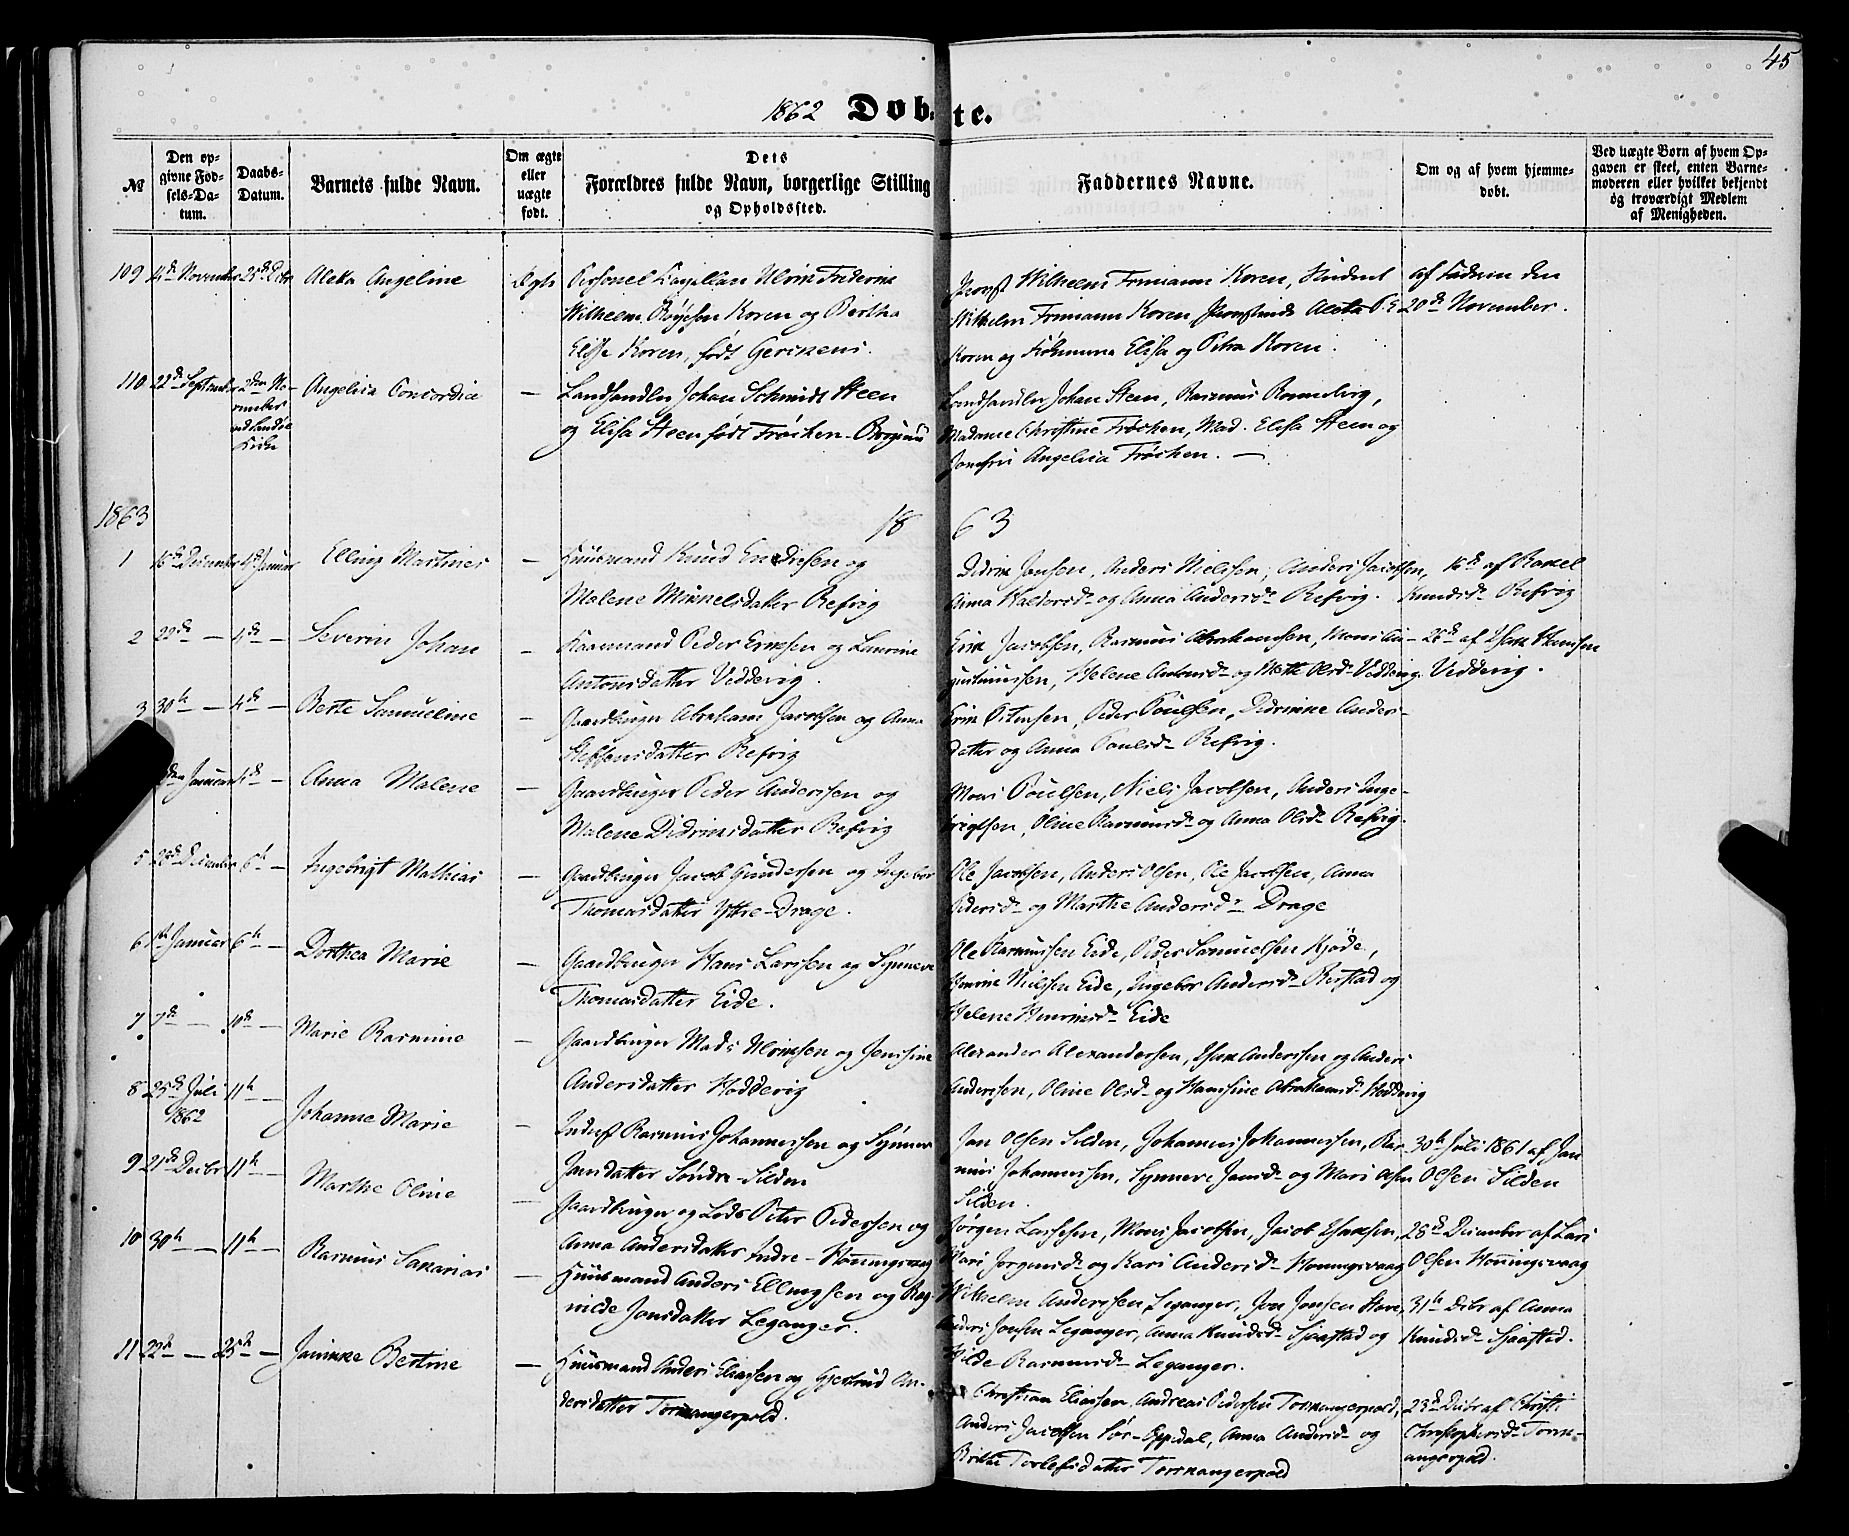 45
1862 Døbte.
№
Den op-
givne Fød-
sels-Da-
tum.
Daabs-
Datum.
Barnets fulde Navn.
Om ægte
eller
uægte
født.
Dets
Forældres fulde Navn, borgerlige Stilling
og Opholdssted.
Faddernes Navne.
Om og af hvem hjemme-
døbt.
Ved uægte Børn af hvem Op-
gaven er skeet, enten Barne-
moderen eller hvilket bekjendt
og troværdigt Medlem
af Menigheden.
109 4de November 25de Decbr Aletta Angeline Ægte Personel Kapellan Ulrik Frederik
Wilhelm Bøysen Koren og Bertha
Elise Koren, født Gerckens.
Provst Wilhelm Frimann Koren, Student
Wilhelm Frimann Koren Provstinde Aletta P. E
Koren og Frøknerne Elisa og Petra Koren.
af Faderen den
20de November.
110 22de September 2den No-
vember
Kirke
Angelica Concordia — Landhandler Johan Schmidt Steen
og Elisa Steen født Frøchen
Landhandler Johan Steen, Rasmus Ronneberg,
Madame Christine Frøchen, Mad. Elisa Steen og
Jomfru Angelica Frøchen. —
1863
1863
1 16de December 4de Januar Elling Martines — Huusmand Knud Endresen og
Malene Mikkelsdatter Refvig
Didrik Jansen, Anders Nielsen, Anders Jacobsen,
Anna Haldorsd- og Anna Andersd- Refvig.
16de af Rakel
Knudsd- Refvig
2 22de — 4de — Severin Johan — Huusmand Peder Eriksen og Laurine
Antonsdatter Vedderig.
Erik Jacobsen, Rasmus Abrahamsen, Mons Au-
gustinussen, Helene Antonsd- og Mette Olsd- Vedderig.
26de af Isak Hansen
Vedderig.
3 30te — 4de — Berte Samueline — Gaardbruger Abraham Jacobsen og Anna
Steffensdatter Refvig
Erik Petersen, Peder Poulsen, Didrikke Anders-
datter og Anna Paulsd- Refvig.
Januar 4de — Anna Malene — Gaardbruger Peder Anderssen og
Malene Didriksdatter Refvig
Mons Poulsen, Niels Jacobsen, Anders Inge-
brigtsen, Oline Rasmusd- og Anna Olsd- Refvig.
5 28de December 6te — Ingebrigt Mathias — Gaardbruger Jacob Gundersen og Ingebor
Thomasdatter Yttre-Drage.
Ole Jacobsen, Anders Olsen, Ole Jacobsen, Anna
Pedersd- og Marthe Andersd- Drage
6 1ste Januar 6te — Dorthea Marie — Gaardbruger Hans Larssen og Synneve
Thomasdatter Eide.
Ole Rasmussen Eide, Peder Samuelsen Kjøde,
Henrik Nielsen Eide, Ingebor Andersd- Berstad og
Helene Henriksd- Eide
7 7de — 10de — Marie Rasmine — Gaardbruger Mads Ulriksen og Jensine
Andersdatter Hodderig
Alexander Alexandersen, Isak Anderssen og Anders
Anderssen, Oline Olsd- og Hanssine Abrahamsd- Hodderig
8 25de Juli
1862
11te — Johanne Marie — Inderst Rasmus Johannessen og Synneve
Jansdatter Søndre-Silden
Jan Olsen Silden, Johannes Johannessen, Ras-
mus Johannessen, Synneve Jansd- og Mari Olsen
Silden.
30te Juli 1861 af Jan
Olsen Silden
9 21de Decbr 11te — Marthe Oline — Gaardbruger og Lods Peter Pedersen og
Anna Andersdatter Indre-Honningsvaag
Jørgen Lassesen, Mons Jacobsen, Jacob Isaksen,
Mari Jørgensd- og Kari Andersd- Honningsvaag
28de December af Lars
Olsen Honningsvaag
10 30te — 11te — Rasmus Sakarias — Huusmand Anders Ellingsen og Rag-
nilde Jonsdatter Leganger.
Wilhelm Anderssen Leganger, Jon Jonsen Hove,
Anders Jonsen Leganger, Anna Knudsd- Sjaastad og
Hilde Rasmusd- Leganger.
31te Decbr af Anna
Knudsd- Sjaastad.
11 22de — 25de — Jannikke Bertine — Huusmand Anders Eliassen og Gjertrud An-
dersdatter Torskangerpold.
Christian Eliassen, Andreas Pedersen Torskangerpold,
Anders Jacobsen Sør-Oppedal, Anna Andersd- og
Brithe Torlefsdatter Torskangerpold
23de Decbr af Christi
Christophersd- Torsk-
angerpold.